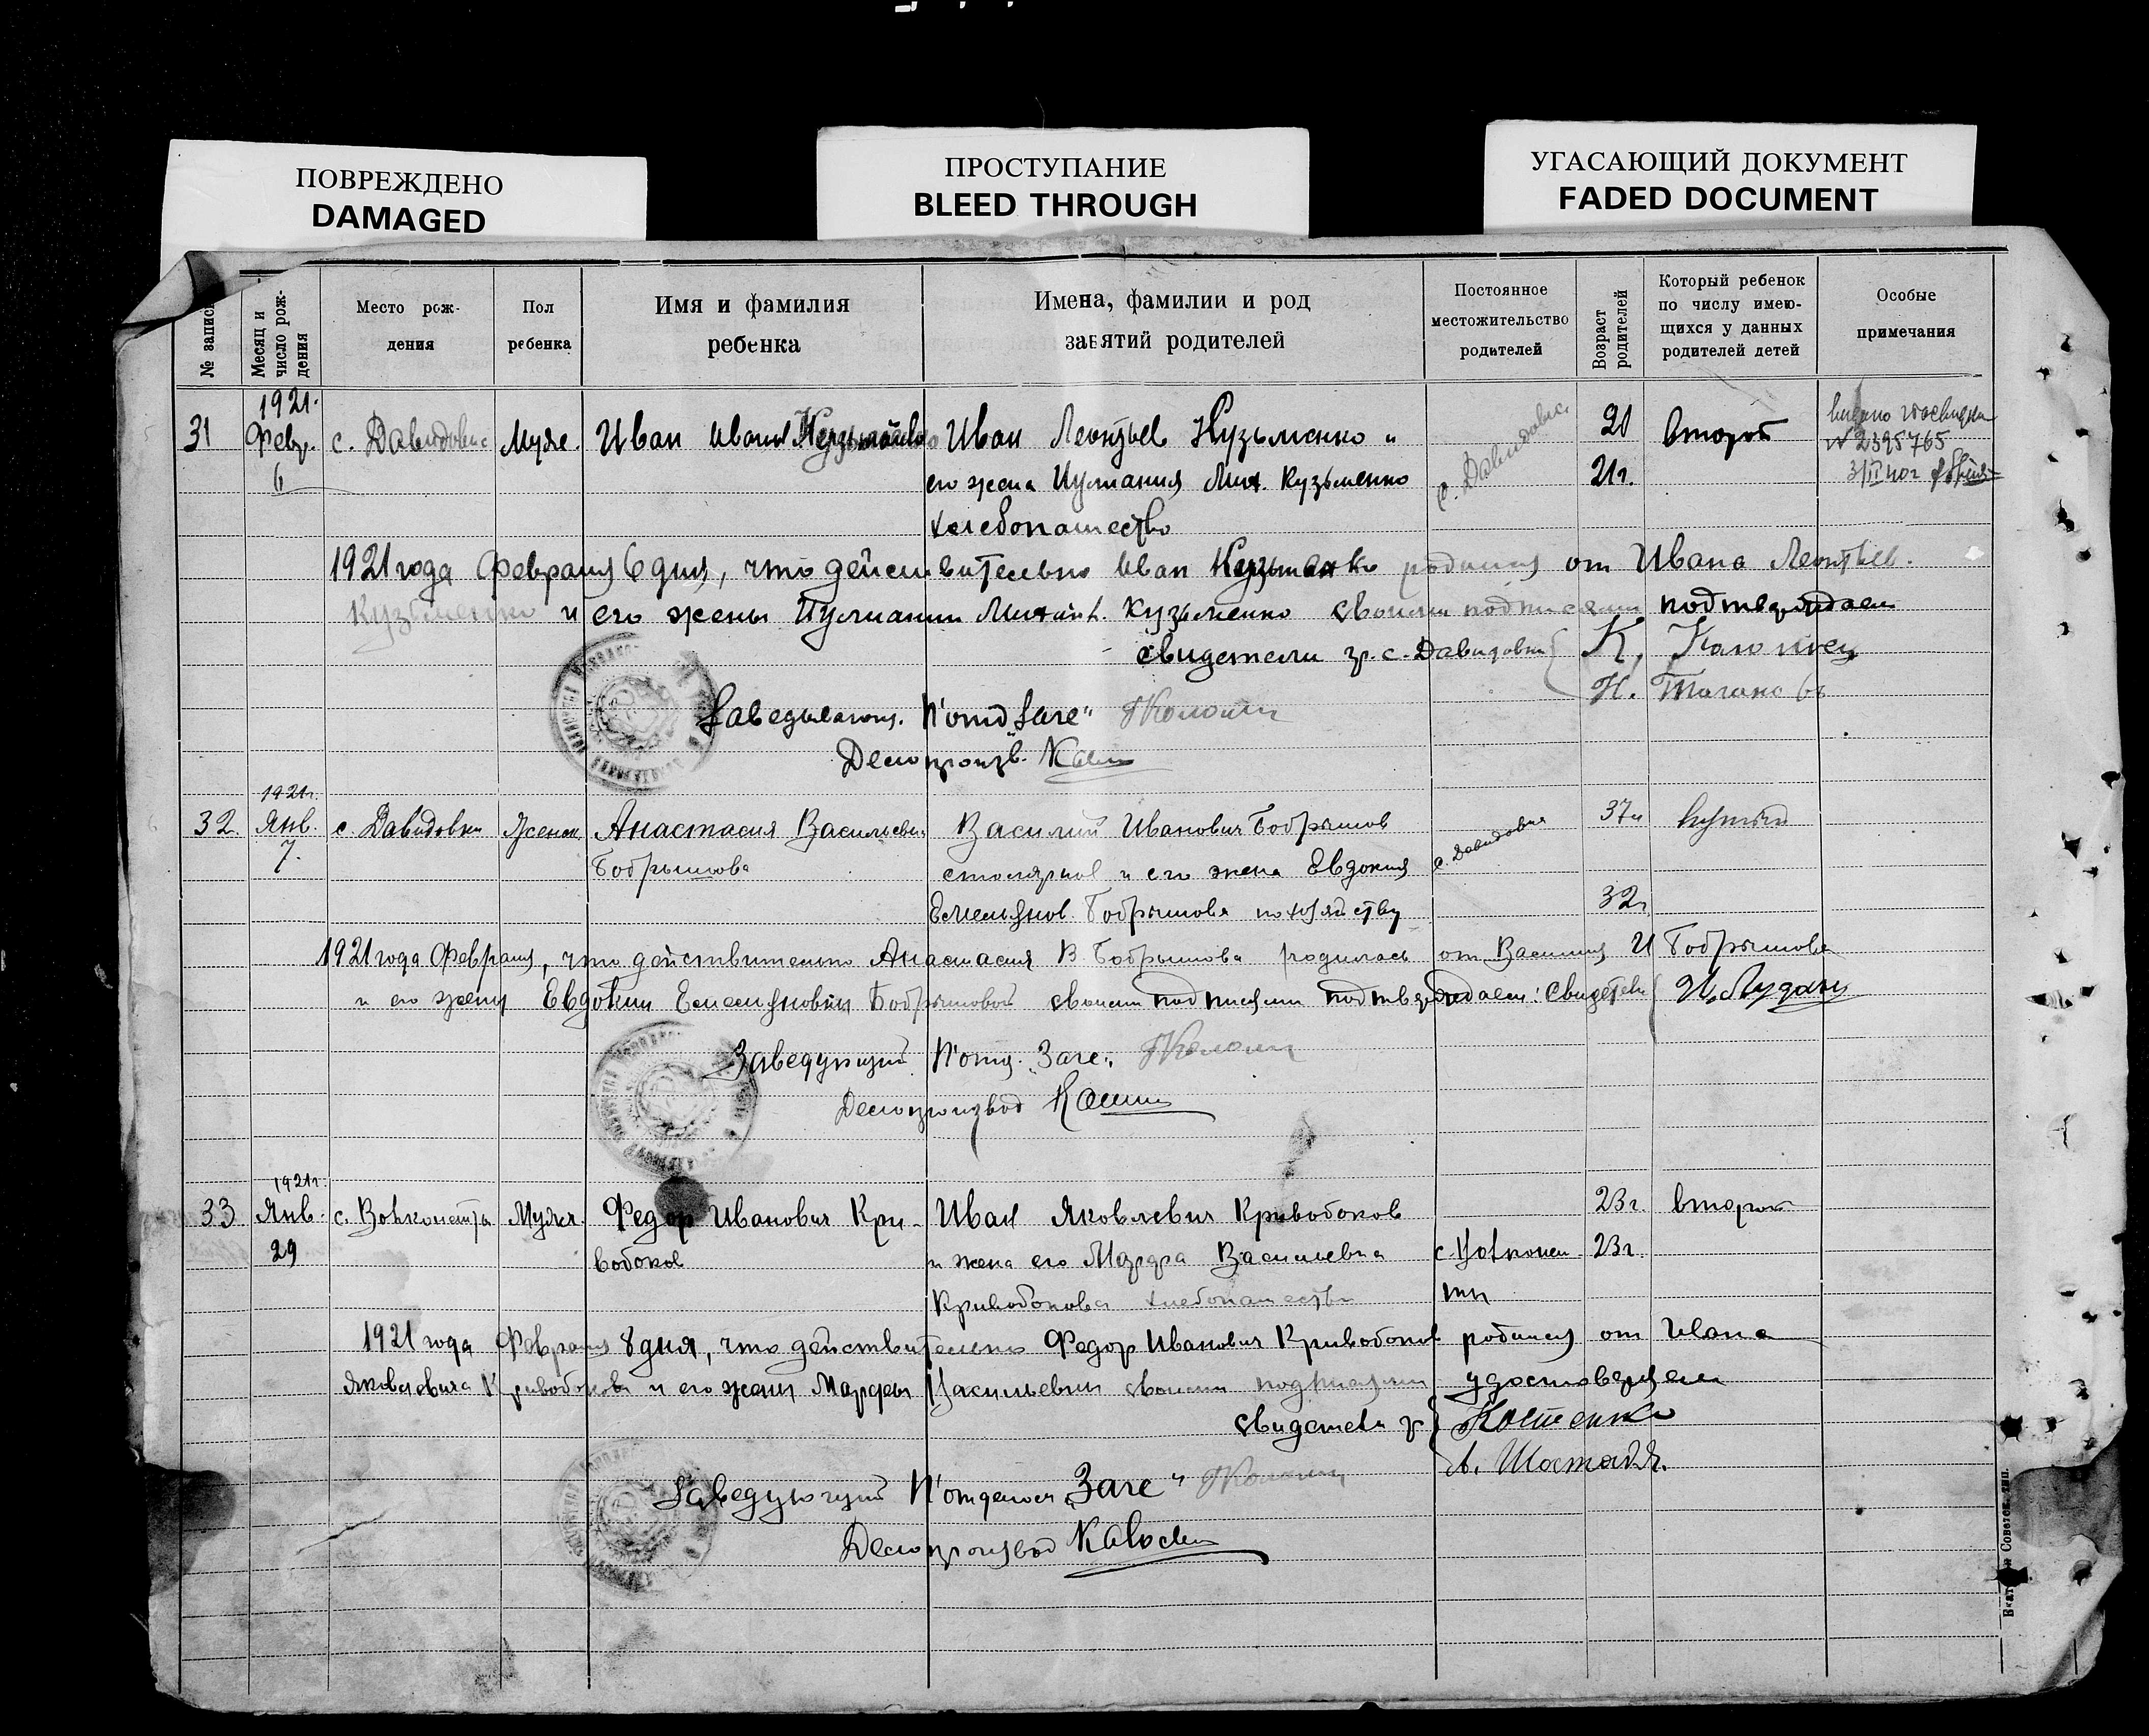 ПОВРЕЖДЕНО
DAMAGED
ПРОСТУПАНИЕ
BLEED THROUGH
УГАСАЮЩИЙ ДОКУМЕНТ
FADED DOCUMENT
№ записи
Месяц и
число рож-
дения
Место рож-
дения
Пол
ребенка
Имя и фамилия
ребенка
Имена, фамилии и род
занятий родителей
Постоянное
местожительство
родителей
Возраст
родителей
Который ребенок
по числу имею-
щихся у данных
родителей детей
Особые
примечания
31
1921.
Февр.
6
с. Давидовка
Муж.
Иван Иванов Кузьменко
Иван Леонтьев Кузьменко и
его жена Иулиания Мих. Кузьменко
хлебопашество
с. Давидовка
21г.
Второй
№ 2395765
1921 года Февраля 6 дня, что действительно Иван Кузьменко родился от Ивана Леонтьев.
Кузьменко и его жены Иулиании Михайл. Кузьменко своими подписями подтверждаем
свидетели гр. с. Давидовки
К. Коломиец
Н.
П'отд "Загс"
Делопроизв.
32
1921г.
Янв.
7.
с. Давидовка
Женск.
Анастасия Васильевн
Бобрышова
Василий Иванович Бобрышов
столяров и его жена Евдокия
Емельянов. Бобрышова по хозяйству
с. Давидовка
37л
32г
1921 года Февраля, что действительно Анастасия В. Бобрышова родилась от Василия И Бобрышова
и его жены Евдокии Емельяновны Бобрышовой своими подписями подтверждаем: Свидетели
Заведующий П'отд. "Загс"
Делопроизвод
33
1921г.
Янв.
29
Мужск.
Федор Иванович Кри-
вобоков
Иван Яковлевич Кривобоков
и жена его Марфа Васильевна
Кривобокова хлебопашество
23г.
23г.
второй
1921 года Февраля 8 дня, что действительно Федор Иванович Кривобоков родился от Ивана
Яковлевича Кривобокова и его жены Марфы Васильевны своими подписями удостоверяем
свидетели гр.
Костенко
А. Шостак
Заведующий П'отделом "Загс"
Делопроизвод